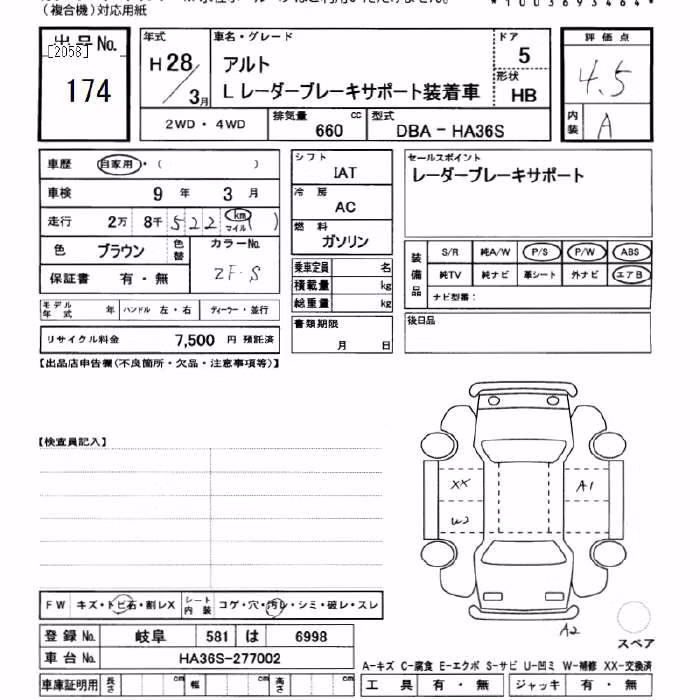 （複合機）対応用紙
*1003693464*
出品No.
[2058]
174
年式
H28/3月
車名・グレード
アルト
L レーダーブレーキサポート装着車
ドア
5
形状
HB
評価点
4.5
内装
A
2WD・4WD
排気量
660 cc
型式
DBA - HA36S
車歴 自家用・（ ）
車検 9年 3月
走行 2万 8千 522 km マイル ( )
色 ブラウン 色替
カラーNo.
ZF-S
保証書 有・無
モデル年式 年 ハンドル 左・右 ディーラー・並行
リサイクル料金 7,500 円 預託済
シフト
IAT
冷房
AC
燃料
ガソリン
乗車定員 名
積載量 kg
総重量 kg
書類期限
月 日
セールスポイント
レーダーブレーキサポート
装備品
S/R 純A/W P/S P/W ABS
純TV 純ナビ 革シート 外ナビ エアB
ナビ型番：
後日品
【出品店申告欄（不良箇所・欠品・注意事項等）】
【検査員記入】
XX
A1
W2
A2
スペア
FW キズ・トビ石・割レX シート内装 コゲ・穴・汚レ・シミ・破レ・スレ
登録No. 岐阜 581 は 6998
車台No. HA36S-277002
車庫証明用 長さ cm 幅 cm 高さ cm
A-キズ C-腐食 E-エクボ S-サビ U-凹ミ W-補修 XX-交換済
工具 有・無 ジャッキ 有・無